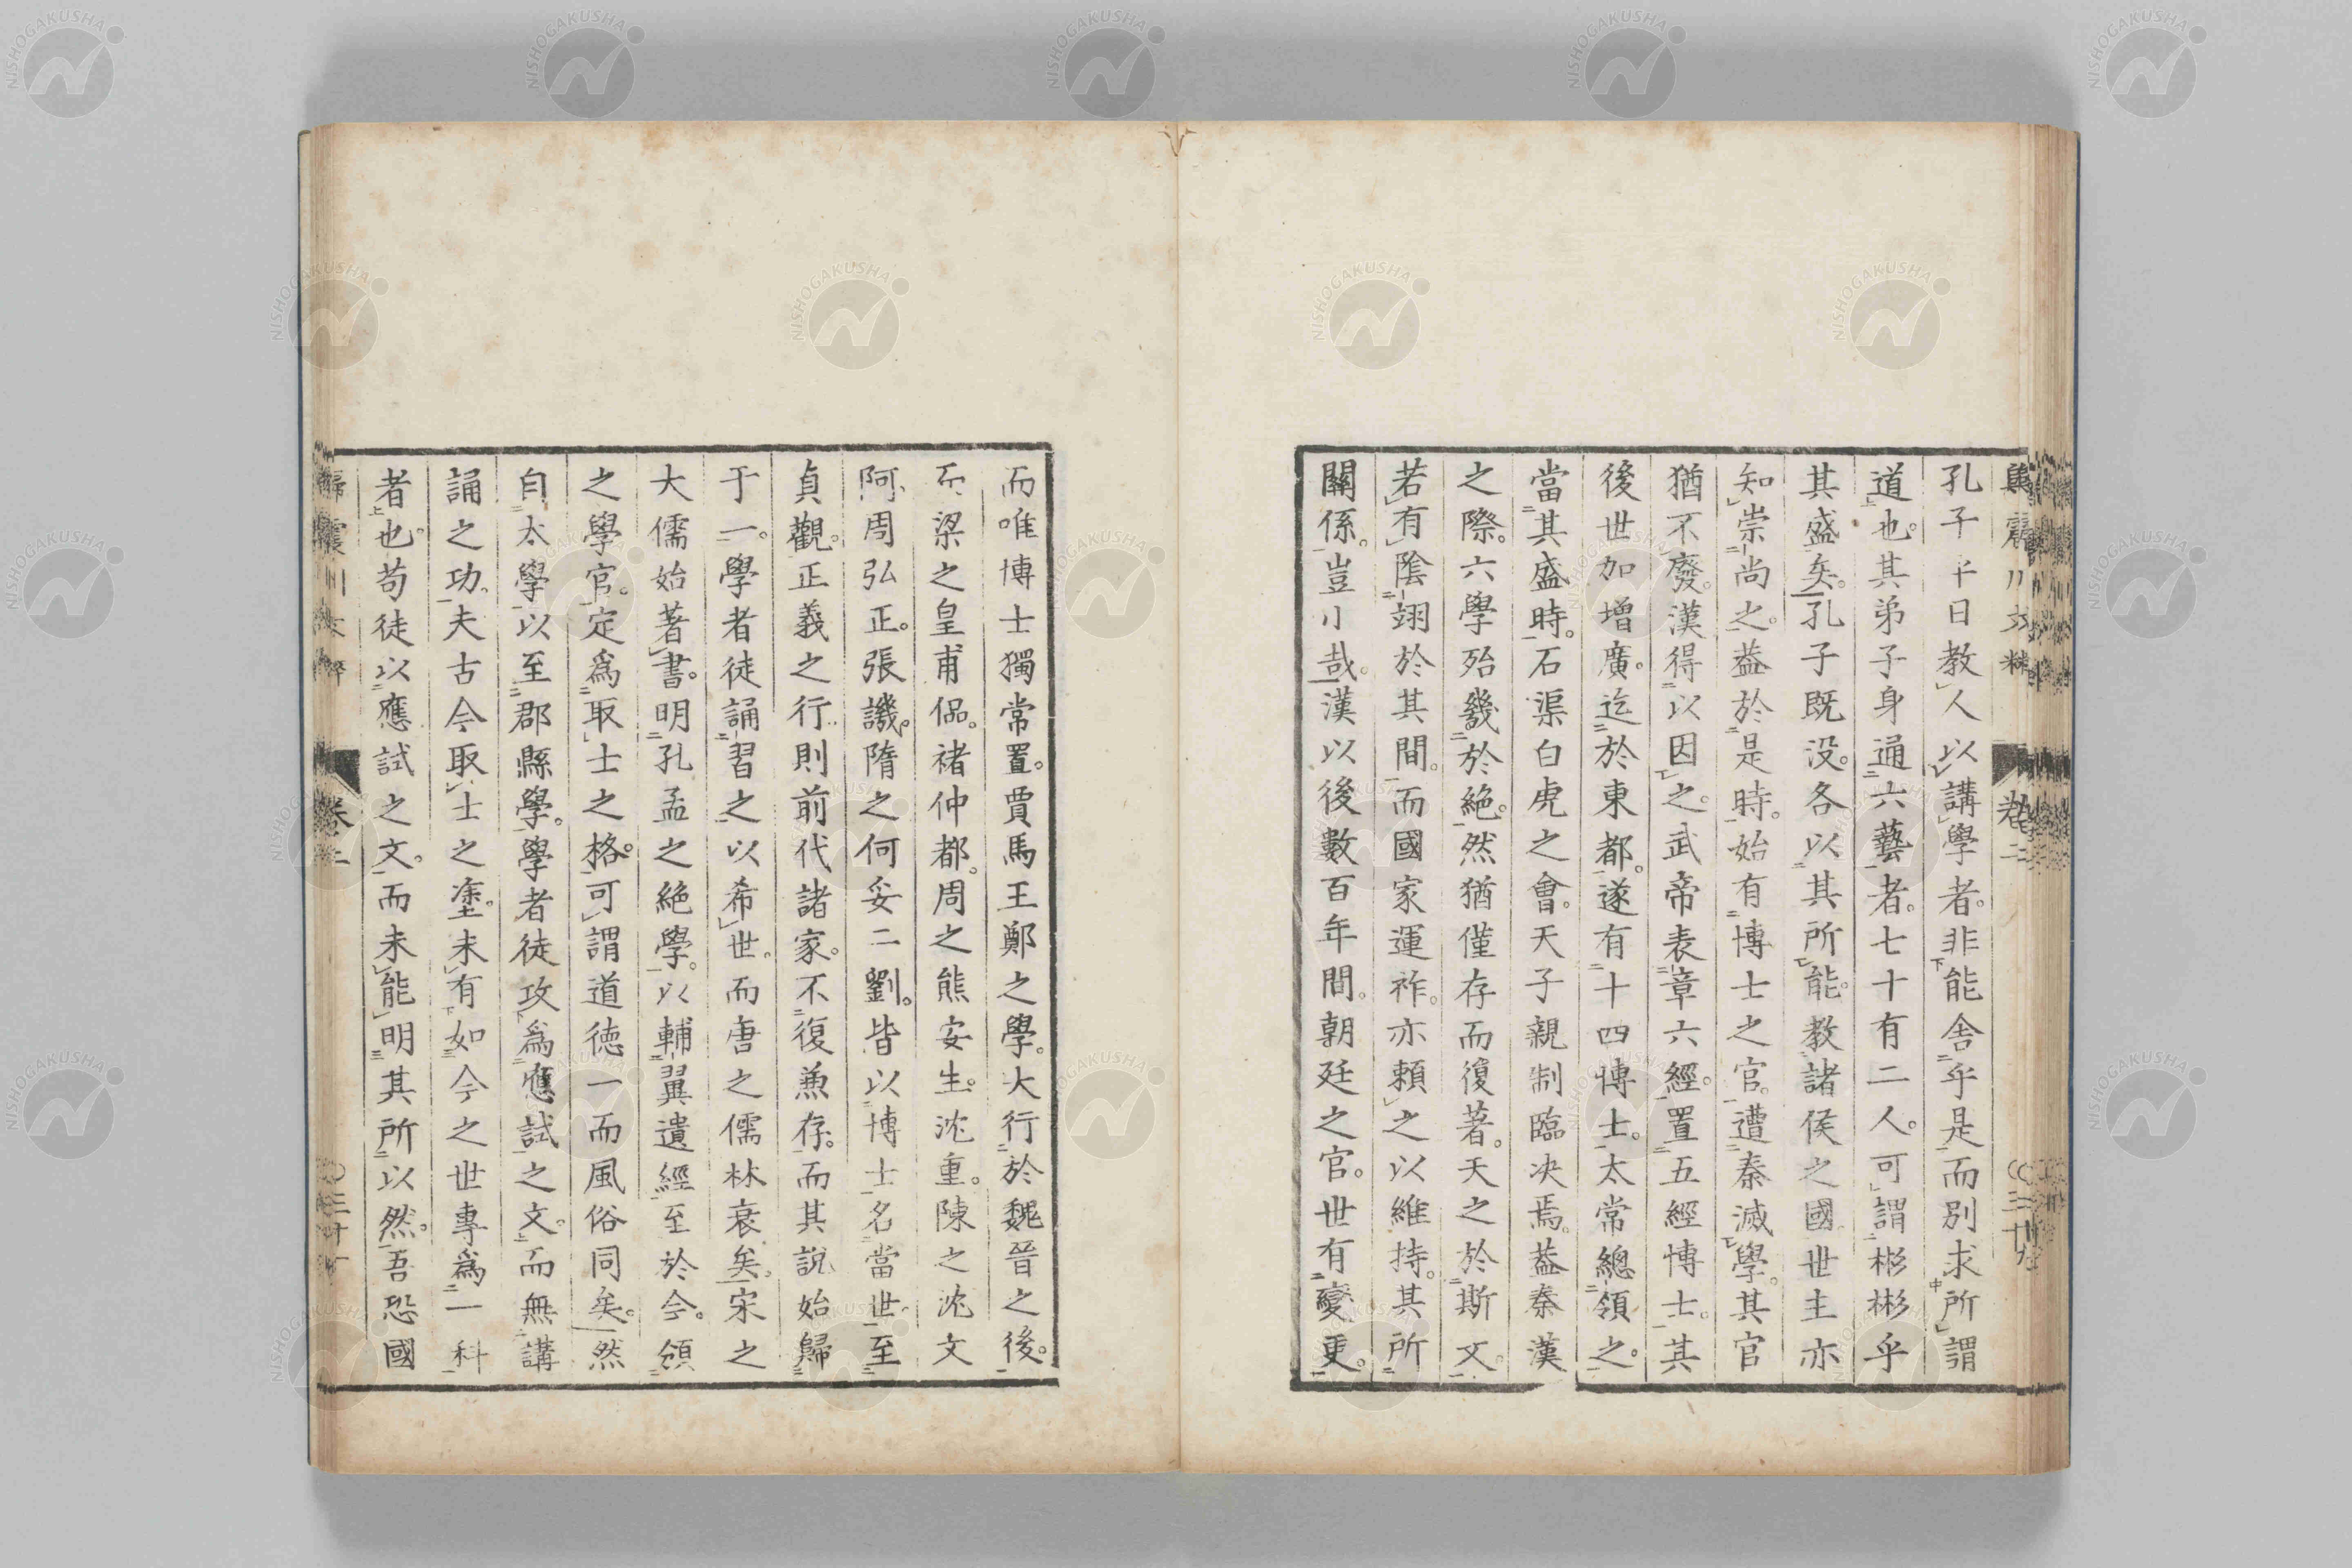 孔子平日教人以講學者。非能舍乎是而別求所謂
道也。其弟子身通六藝者。七十有二人。可謂彬彬乎
其盛矣。孔子既没。各以其所能。教諸侯之國世主亦
知崇尚之。葢於是時。始有博士之官。遭秦滅學。其官
猶不廢。漢得以因之。武帝表章六經。置五經博士。其
後世加增廣。迄於東都。遂有十四博士。太常總領之。
當其盛時。石渠白虎之會。天子親制臨决焉。葢秦漢
之際。六學殆幾於絶。然猶僅存而復著。天之於斯文。
若有陰翊於其間。而國家運祚。亦頼之以維持。其所
關係。豈小哉。漢以後數百年間。朝廷之官。世有變更。
而唯博士獨常置。賈馬王鄭之學。大行於魏晉之後。
至梁之皇甫侃。褚仲都。周之熊安生。沈重。陳之沈文
阿。周弘正。張譏。隋之何妥二劉。皆以博士名當世。至
貞觀。正義之行。則前代諸家。不復兼存。而其説始歸
于一。學者徒誦習之以希世。而唐之儒林衰矣。宋之
大儒始著書。明孔孟之絶學。以輔翼遺經至於今。頒
之學官。定爲取士之格。可謂道德一而風俗同矣。然
自太學以至郡縣學。學者徒攻爲應試之文。而無講
誦之功。夫古今取士之塗。未有如今之世專爲一科
者也。苟徒以應試之文。而未能明其所以然。吾恐國
卷二